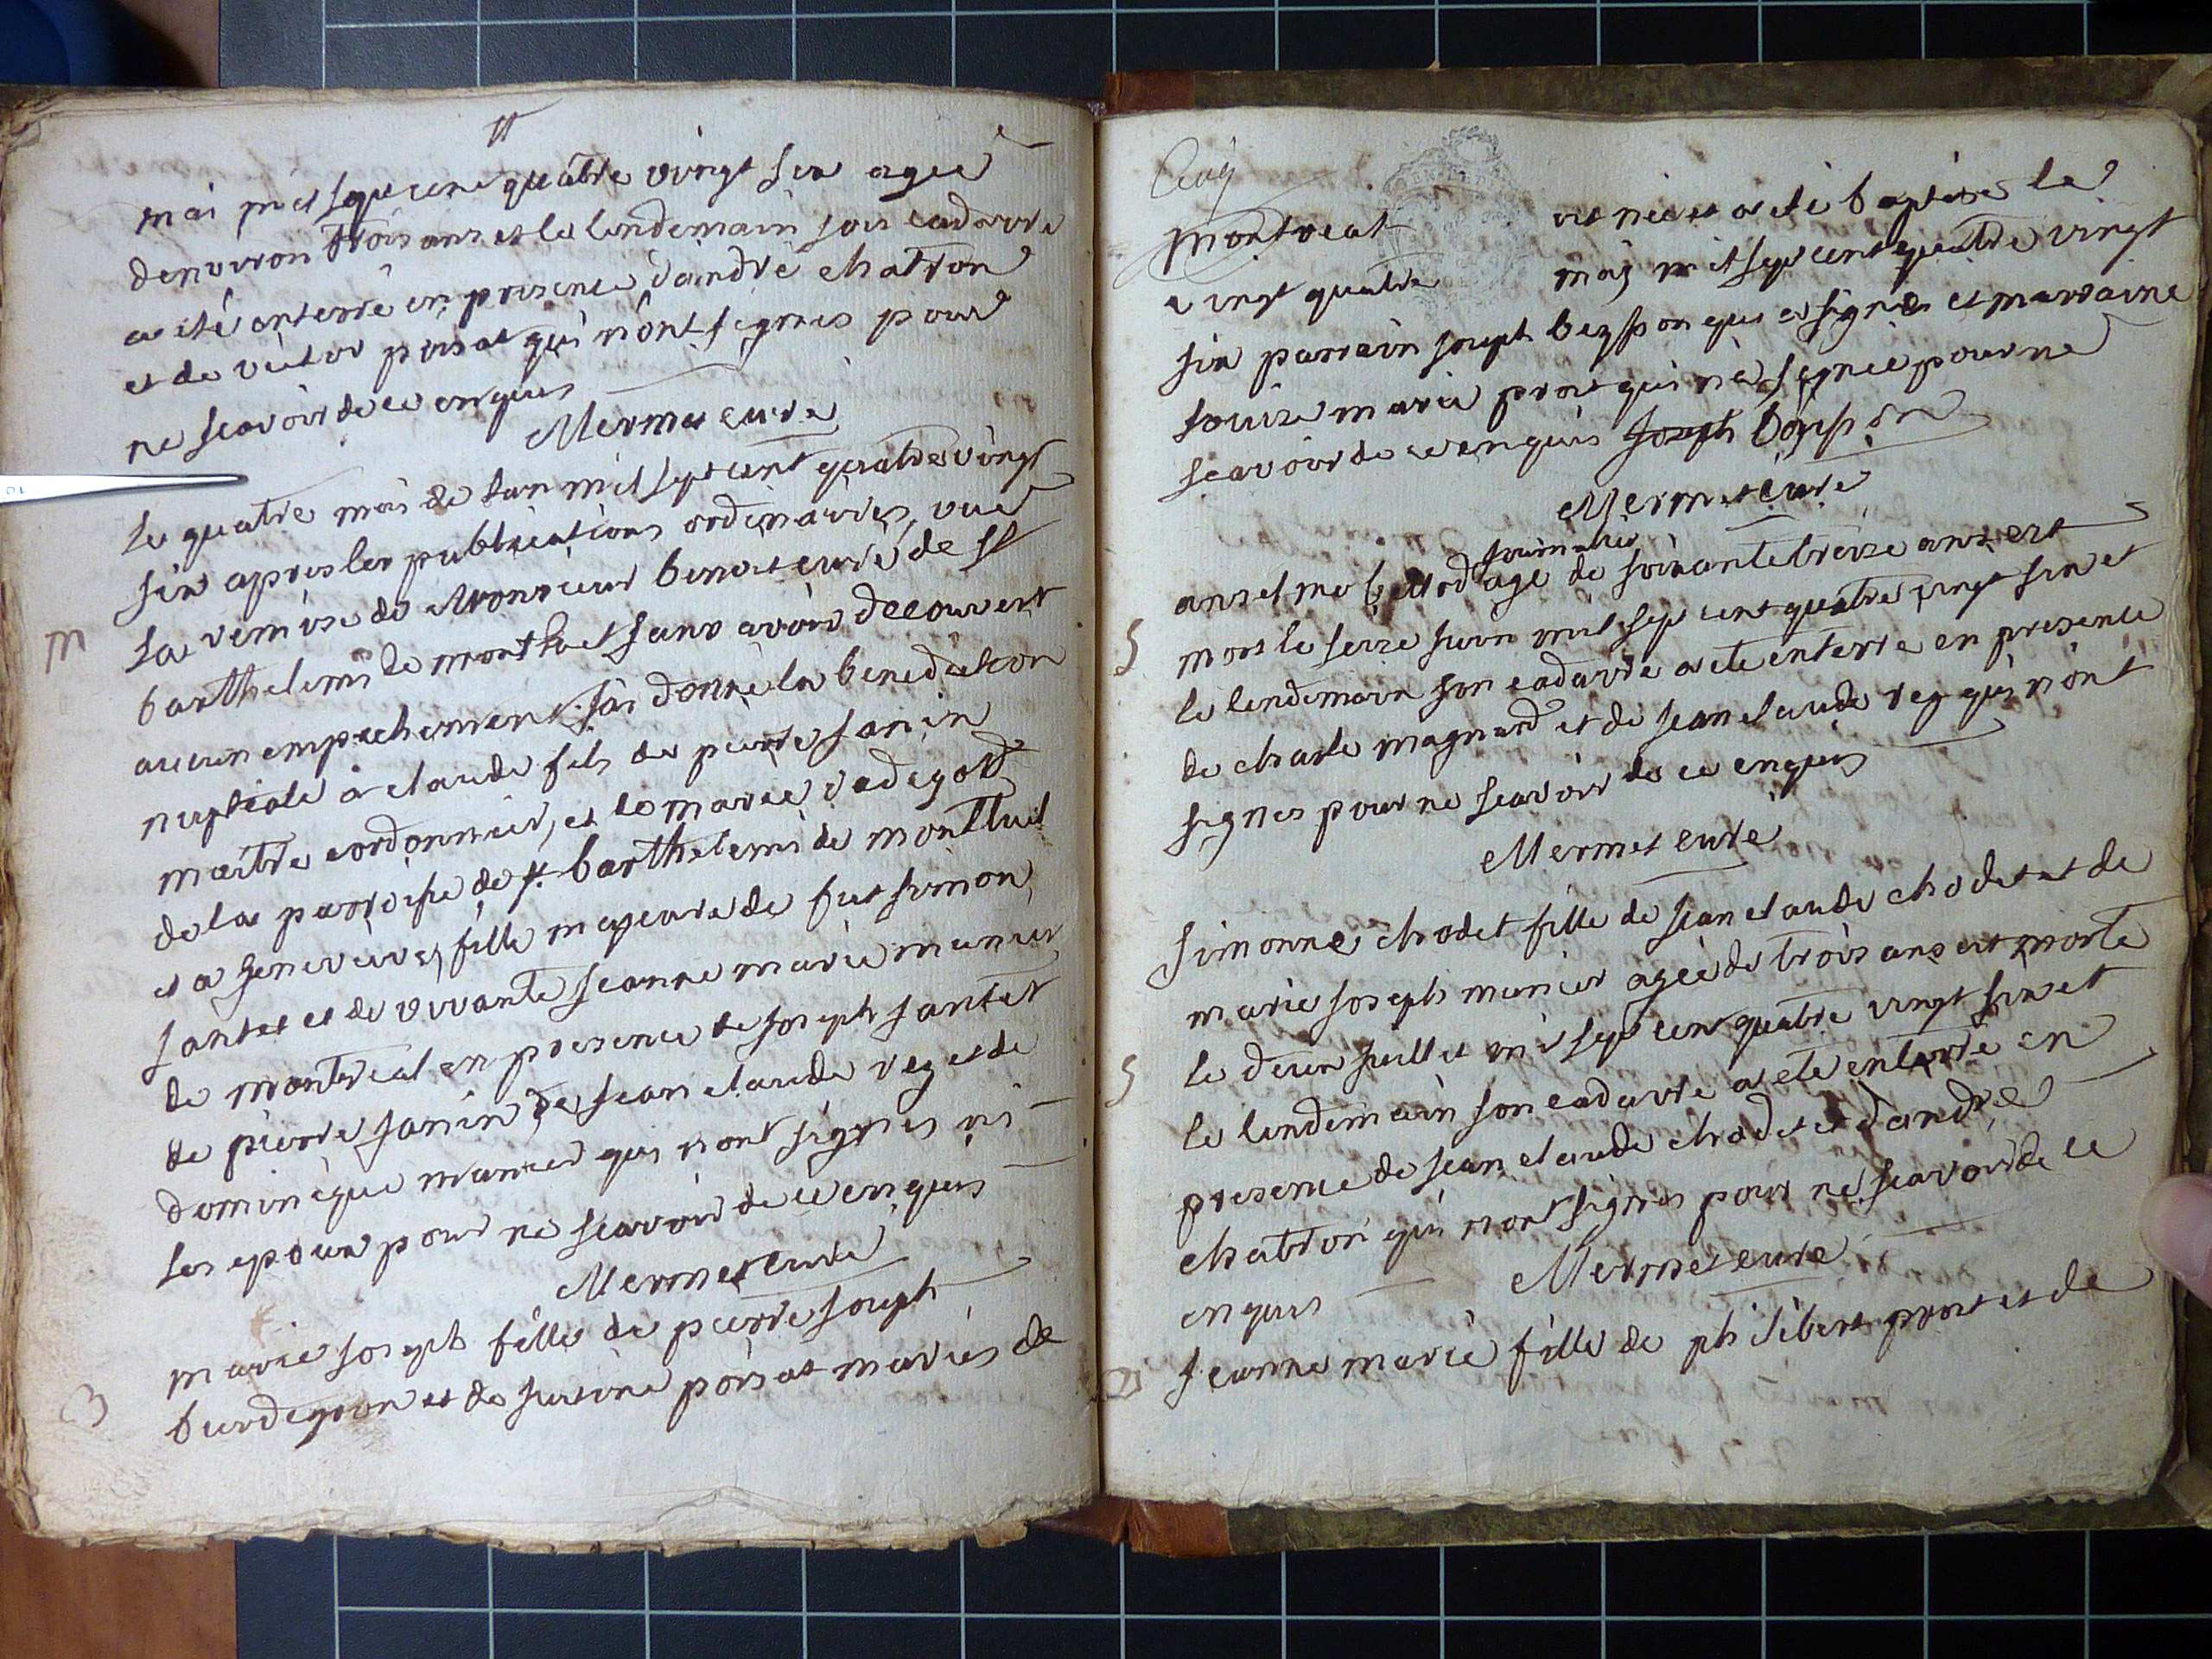 11
mai mil sept cent quatre vingt six agée
denviron trois ans et le lendemain son cadavre
a été enterré en presence d'andré chatron
et de victor poisat qui n'ont signés pour
ne scavoir de ce enquis
Mermet curé
Le quatre mai de lan mil sept cent quatre vingt
six apres les publications ordinaires, vue
M
la remise de Monsieur benoit curé de st
barthelemi de montluel sans avoir decouvert
aucun empechement j'ai donné la benediction
nuptiale a claude fils de pierre janin
maitre cordonnier, et de marie
de la parroisse de st barthelemi de montluel
et a genevieve, fille majeure de fut simon
jantet et de vivante jeanne marie munier
de montreal en presence de joseph jantet
de pierre janin de jean claude rey et de
dominique munier qui n'ont signés ni
les epoux pour ne scavoir de ce enquis
Mermet curé
B
marie joseph fille de pierre joseph
burdeyron et de justine poisat mariés de
montreal est née et a été baptisée le
vingt quatre mai mil sept cent quatre vingt
six parrain joseph qui a signé et marraine
louise marie prost qui n'a signée pour ne
scavoir de ce enquis Joseph
Mermet curé
journalier
anselme agé de soixante treize ans est
S
mort le seize juin mil sept cent quatre vingt six et
le lendemain son cadavre a ete enterré en presence
de charle magnard et de jean claude rey qui n'ont
signés pour ne scavoir de ce enquis
Mermet curé
simonne chodet fille de jean claude chodet et de
marie joseph munier agée de trois ans est morte
S
le deux juillet mil sept cent quatre vingt six et
le lendemain son cadavre a ete enterré en
presence de jean claude chodet et d'andré
chatron qui n'ont signés pour ne scavoir de ce
enquis
Mermet curé
B
jeanne marie fille de philibert prost et de